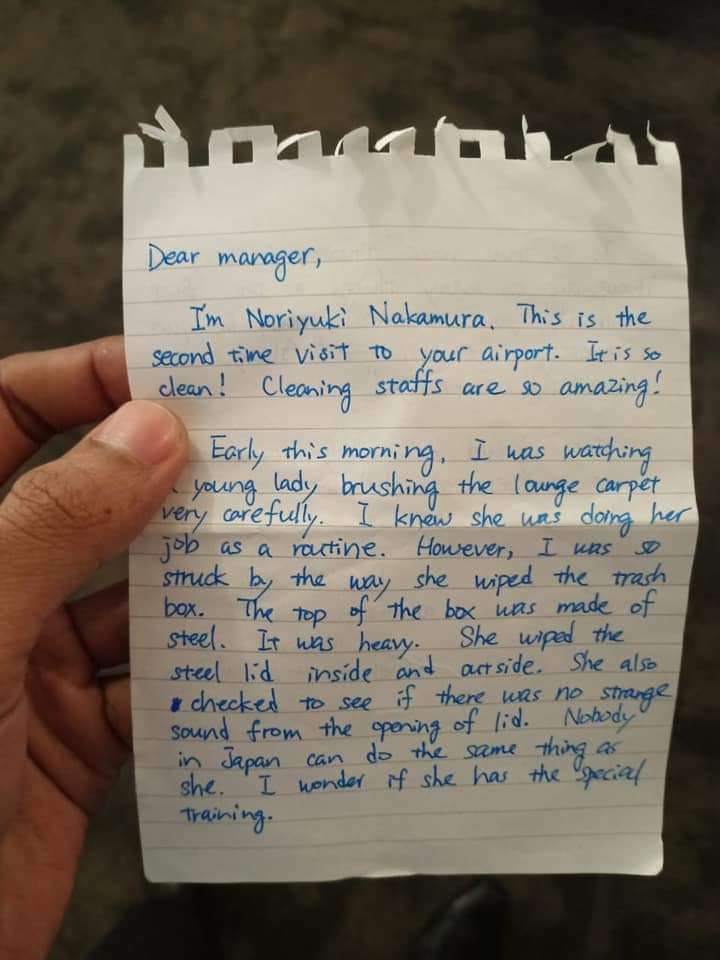 Dear manager,
I'm Noriyuki Nakamura. This is the
second time visit to your airport. It is so
clean! Cleaning staffs are so amazing!
Early this morning, I was watching
young lady brushing the lounge carpet
very carefully. I knew she was doing her
job as a routine. However, I was so
struck by the way she wiped the trash
box. The top of the box was made of
steel. It was heavy. She wiped the
steel lid inside and outside. She also
checked to see if there was no strange
sound from the opening of lid. Nobody
in Japan can do the same thing as
she. I wonder if she has the special
training.